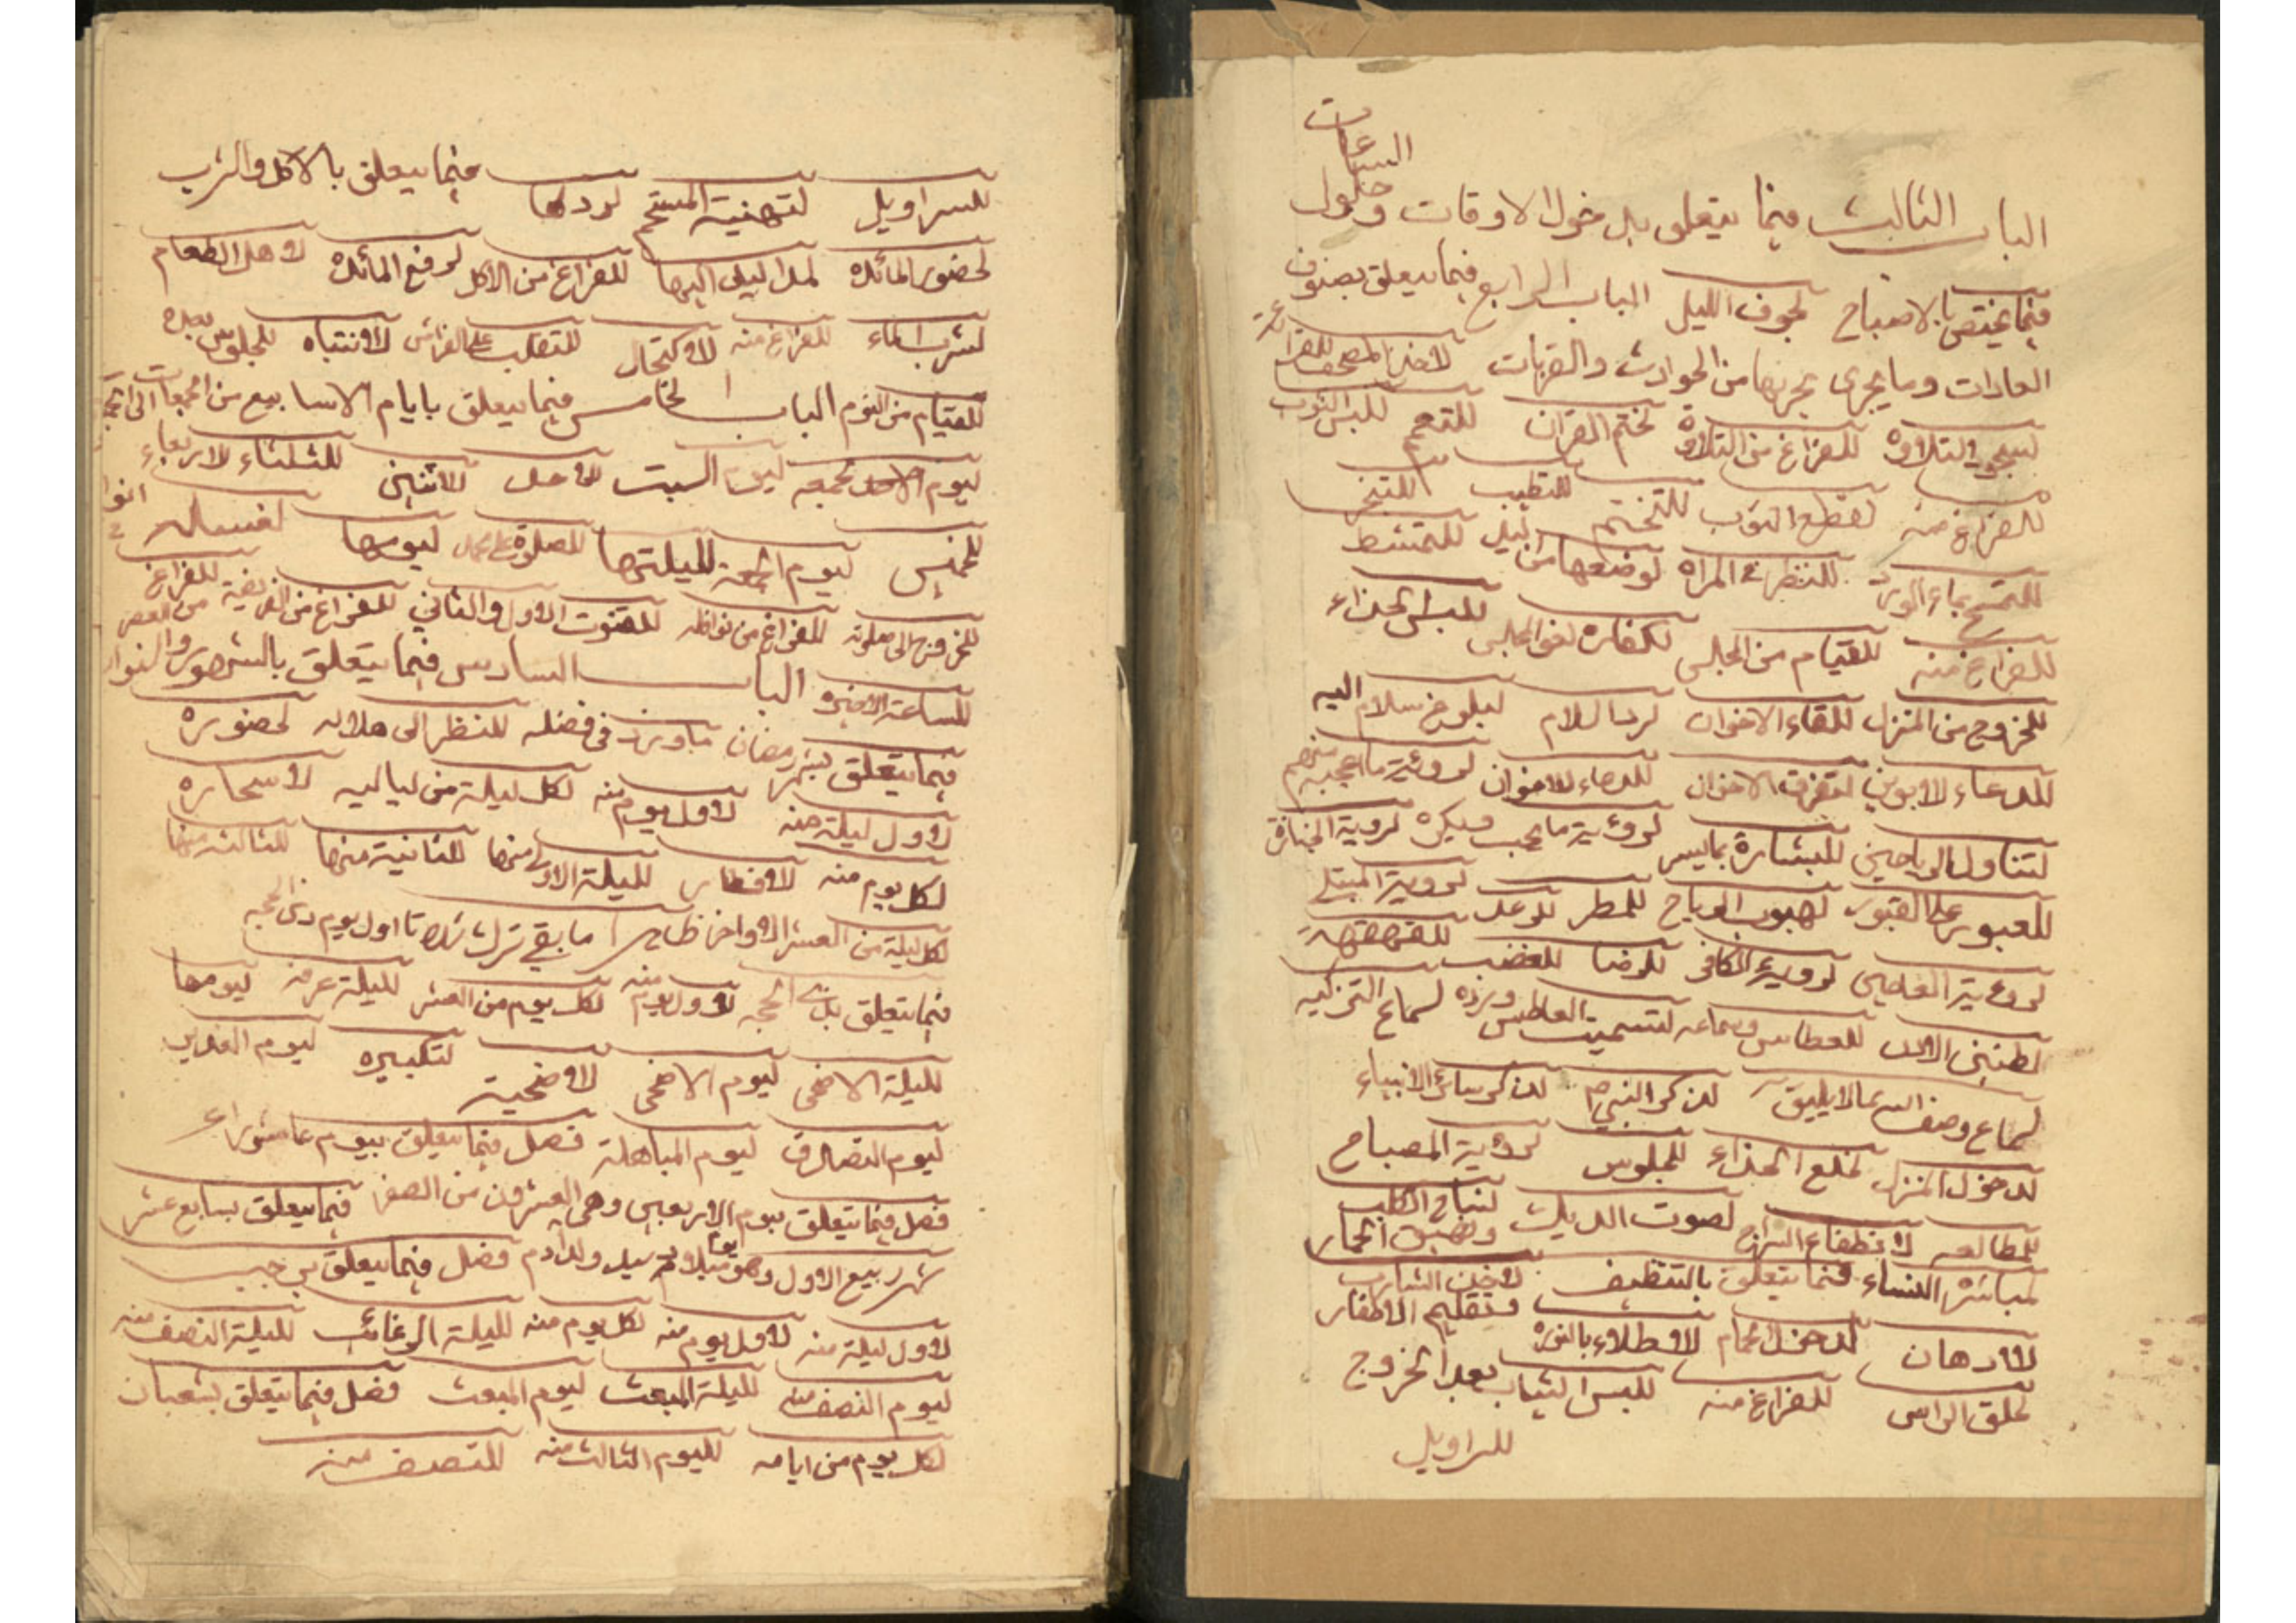 الباب الثالث فيما يتعلق بدخول الاوقات وحلول الساعات
فيما يختص بالاصباح لجوف الليل الباب الرابع فيما يتعلق بصنوف
العادات وما يجرى مجريها من الحوادث والقربات لاخذ المصحف للقرائة
لسجود التلاوة للفراغ من التلاوة لختم القران للتعمم للبس الثوب
للفراغ منه لقطع الثوب للتختم للتطيب للتبخر
للتمسح بماء الورد للنظر فى المراة لوضعها من اليد للتمشط
للفراغ منه للقيام من المجلس لكفارة لغو المجلس للبس الحذاء
للخروج من المنزل للقاء الاخوان لرد السلام لبلوغ سلام اليه
للدعاء للابوين لتفرق الاخوان للدعاء للاخوان لروئية ما اعجبه منهم
لتناول الرياحين للبشارة بما يسر لروئية ما يحب ويكره لروية الجنازة
للعبور على القبور لهبوب الرياح للمطر للرعد لروية المبتلى
لروئية العاصى لروية الكافر للرضا للغضب للقهقهة
لطنين الاذن للعطاس وسماعه لتسميت العاطس ورده لسماع التزكيه
لسماع وصف الله بما لا يليق به لذكر النبي ص لذكر سائر الانبياء
لدخول المنزل لخلع الحذاء للجلوس لروية المصباح
للمطالعه لانطفاء السراج لصوت الديك لنباح الكلب ونهيق الحمار
لمباشرة النساء فيما يتعلق بالتنظيف لاخذ الشارب وتقليم الاظفار
للادهان لدخول الحمام للاطلاء بالنورة
لحلق الراس للفراغ منه للبس الثياب بعد الخروج
للسراويل
للسراويل لتهنية المستحم لردها فيما يتعلق بالاكل والشرب
لحضور المائدة لمد اليد اليها للفراغ من الاكل لرفع المائدة لاهل الطعام
لشرب الماء للفراغ منه للاكتحال للتقلب على الفراش للانتباه للجلوس بعده
للقيام من النوم الباب الخامس فيما يتعلق بايام الاسابيع من الجمعات الى
ليوم الجمعه ليوم السبت للاحد للاثنين للثلثاء للاربعاء
للخميس ليوم الجمعة لليلتها للصلوة على محمد ليومها لغسله
للخروج الى صلوته للفراغ من نوافله للقنوت الاول والثاني للفراغ من الفريضة للفراغ من العصر
للساعة الاخيرة الباب السادس فيما يتعلق بالشهور
فيما يتعلق بشهر رمضان ما ورد فى فضله للنظر الى هلاله لحضوره
لاول ليلة منه لاول يوم منه لكل ليلة من لياليه لاسحاره
لكل يوم منه للافطار لليلة الاولى منها للثانية منها للثالثة منها
لكل ليلة من العشر الاواخر ما بقي اول يوم ذى الحجه
فيما يتعلق بذى الحجه لاول يوم منه لكل يوم من العشر لليلة عرفه ليومها
لليلة الاضحى ليوم الاضحى للاضحية لتكبيره ليوم الغدير
ليوم التصادق ليوم المباهلة فصل فيما يتعلق بيوم عاشوراء
فصل فيما يتعلق بيوم الاربعين وهى العشرون من الصفر فيما يتعلق بسابع عشر
شهر ربيع الاول وهو يوم ميلاد سيد ولد ادم فصل فيما يتعلق برجب
لاول ليلة منه لاول يوم منه لكل يوم منه لليلة الرغائب لليلة النصف منه
ليوم النصف منه لليلة المبعث ليوم المبعث فصل فيما يتعلق بشعبان
لكل يوم من ايامه لليوم الثالث منه للنصف منه